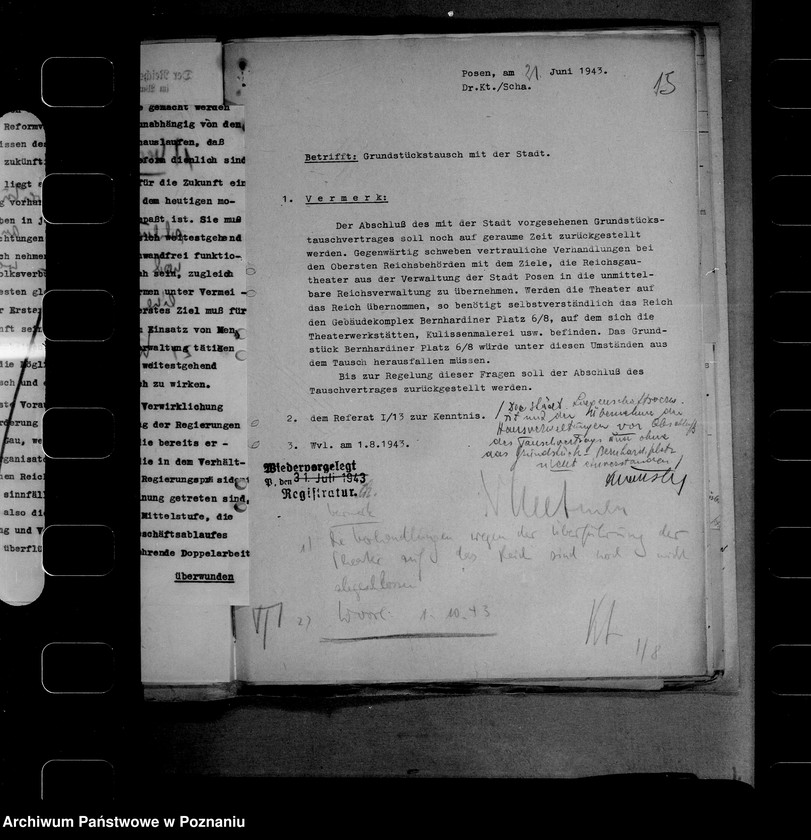 Reformv
issen des
zukünfti
liegt e
g vorhan
ben in j
chtungen
ch nehmen
olksverb
esten gl
r Erste
nft sei
ie Mögli
sch und
ste Vorau
rderung
Gau, we
rganisat
hen Reic
sinnfäl
also di
ng und V
überflü
e gemacht werden
unabhängig von den
hauslaufen, daß
dienlich sind
für die Zukunft ein
dem heutigen mo-
paßt ist. Sie muß
weitestgehend
wandfrei funktio-
h sein, zugleich
rmen unter Vermei -
erstes Ziel muß für
Einsatz von Men
rwaltung tätigen
weitestgehend
h zu wirken.
Verwirklichung
g der Regierungen
ie bereits er -
ie in dem Verhält-
Regierungspräsidei
nung getreten sind,
Mittelstufe, die
schäftsablaufes
ährende Doppelarbeit
überwunden
Posen, am 21. Juni 1943.
Dr.Kt./Scha.
15
Betrifft: Grundstückstausch mit der Stadt.
1. Vermerk:
Der Abschluß des mit der Stadt vorgesehenen Grundstücks-
tauschvertrages soll noch auf geraume Zeit zurückgestellt
werden. Gegenwärtig schweben vertrauliche Verhandlungen bei
den Obersten Reichsbehörden mit dem Ziele, die Reichsgau-
theater aus der Verwaltung der Stadt Posen in die unmittel-
bare Reichsverwaltung zu übernehmen. Werden die Theater auf
das Reich übernommen, so benötigt selbstverständlich das Reich
den Gebäudekomplex Bernhardiner Platz 6/8, auf dem sich die
Theaterwerkstätten, Kulissenmalerei usw. befinden. Das Grund-
stück Bernhardiner Platz 6/8 würde unter diesen Umständen aus
dem Tausch herausfallen müssen.
Bis zur Regelung dieser Fragen soll der Abschluß des
Tauschvertrages zurückgestellt werden.
2. dem Referat I/13 zur Kenntnis.
3. Wvl. am 1.8.1943.
/ Die städt. Liegenschaftsverw.
ist mit der Übernahme der
Hausverwaltungen vor Abschluß
des Tauschvertrages auch ohne
das Grundstück Bernhardinplatz
nicht einverstanden /
Wiedervorgelegt
P., den 31. Juli 1943
Registratur.
Vermerk
1) Die Verhandlungen wegen der Überführung der
Theater auf das Reich sind noch nicht
abgeschlossen
2) Wvorl. 1. 10. 43
Kt
1/8
Archiwum Państwowe w Poznaniu